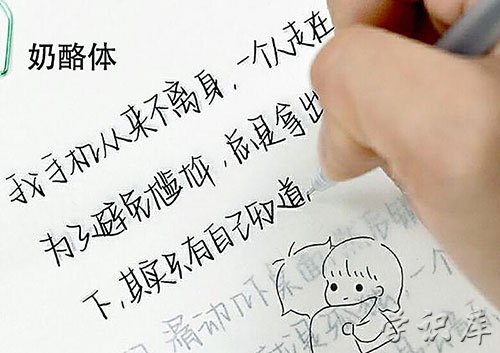 奶酪体
我手机从来不离身，一个人走在
为了避免尴尬，总是拿出
下，其实只有自己知道，
滑动几下桌面
一个
学识库